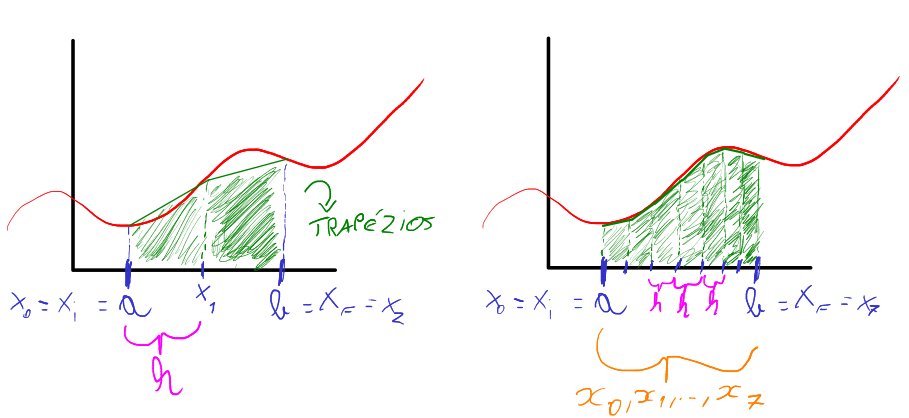 TRAPÉZIOS
x₀ = xᵢ = a x₁ b = x_F = x₂
h
x₀ = xᵢ = a h h h b = x_F = x₇
x₀, x₁, ..., x₇